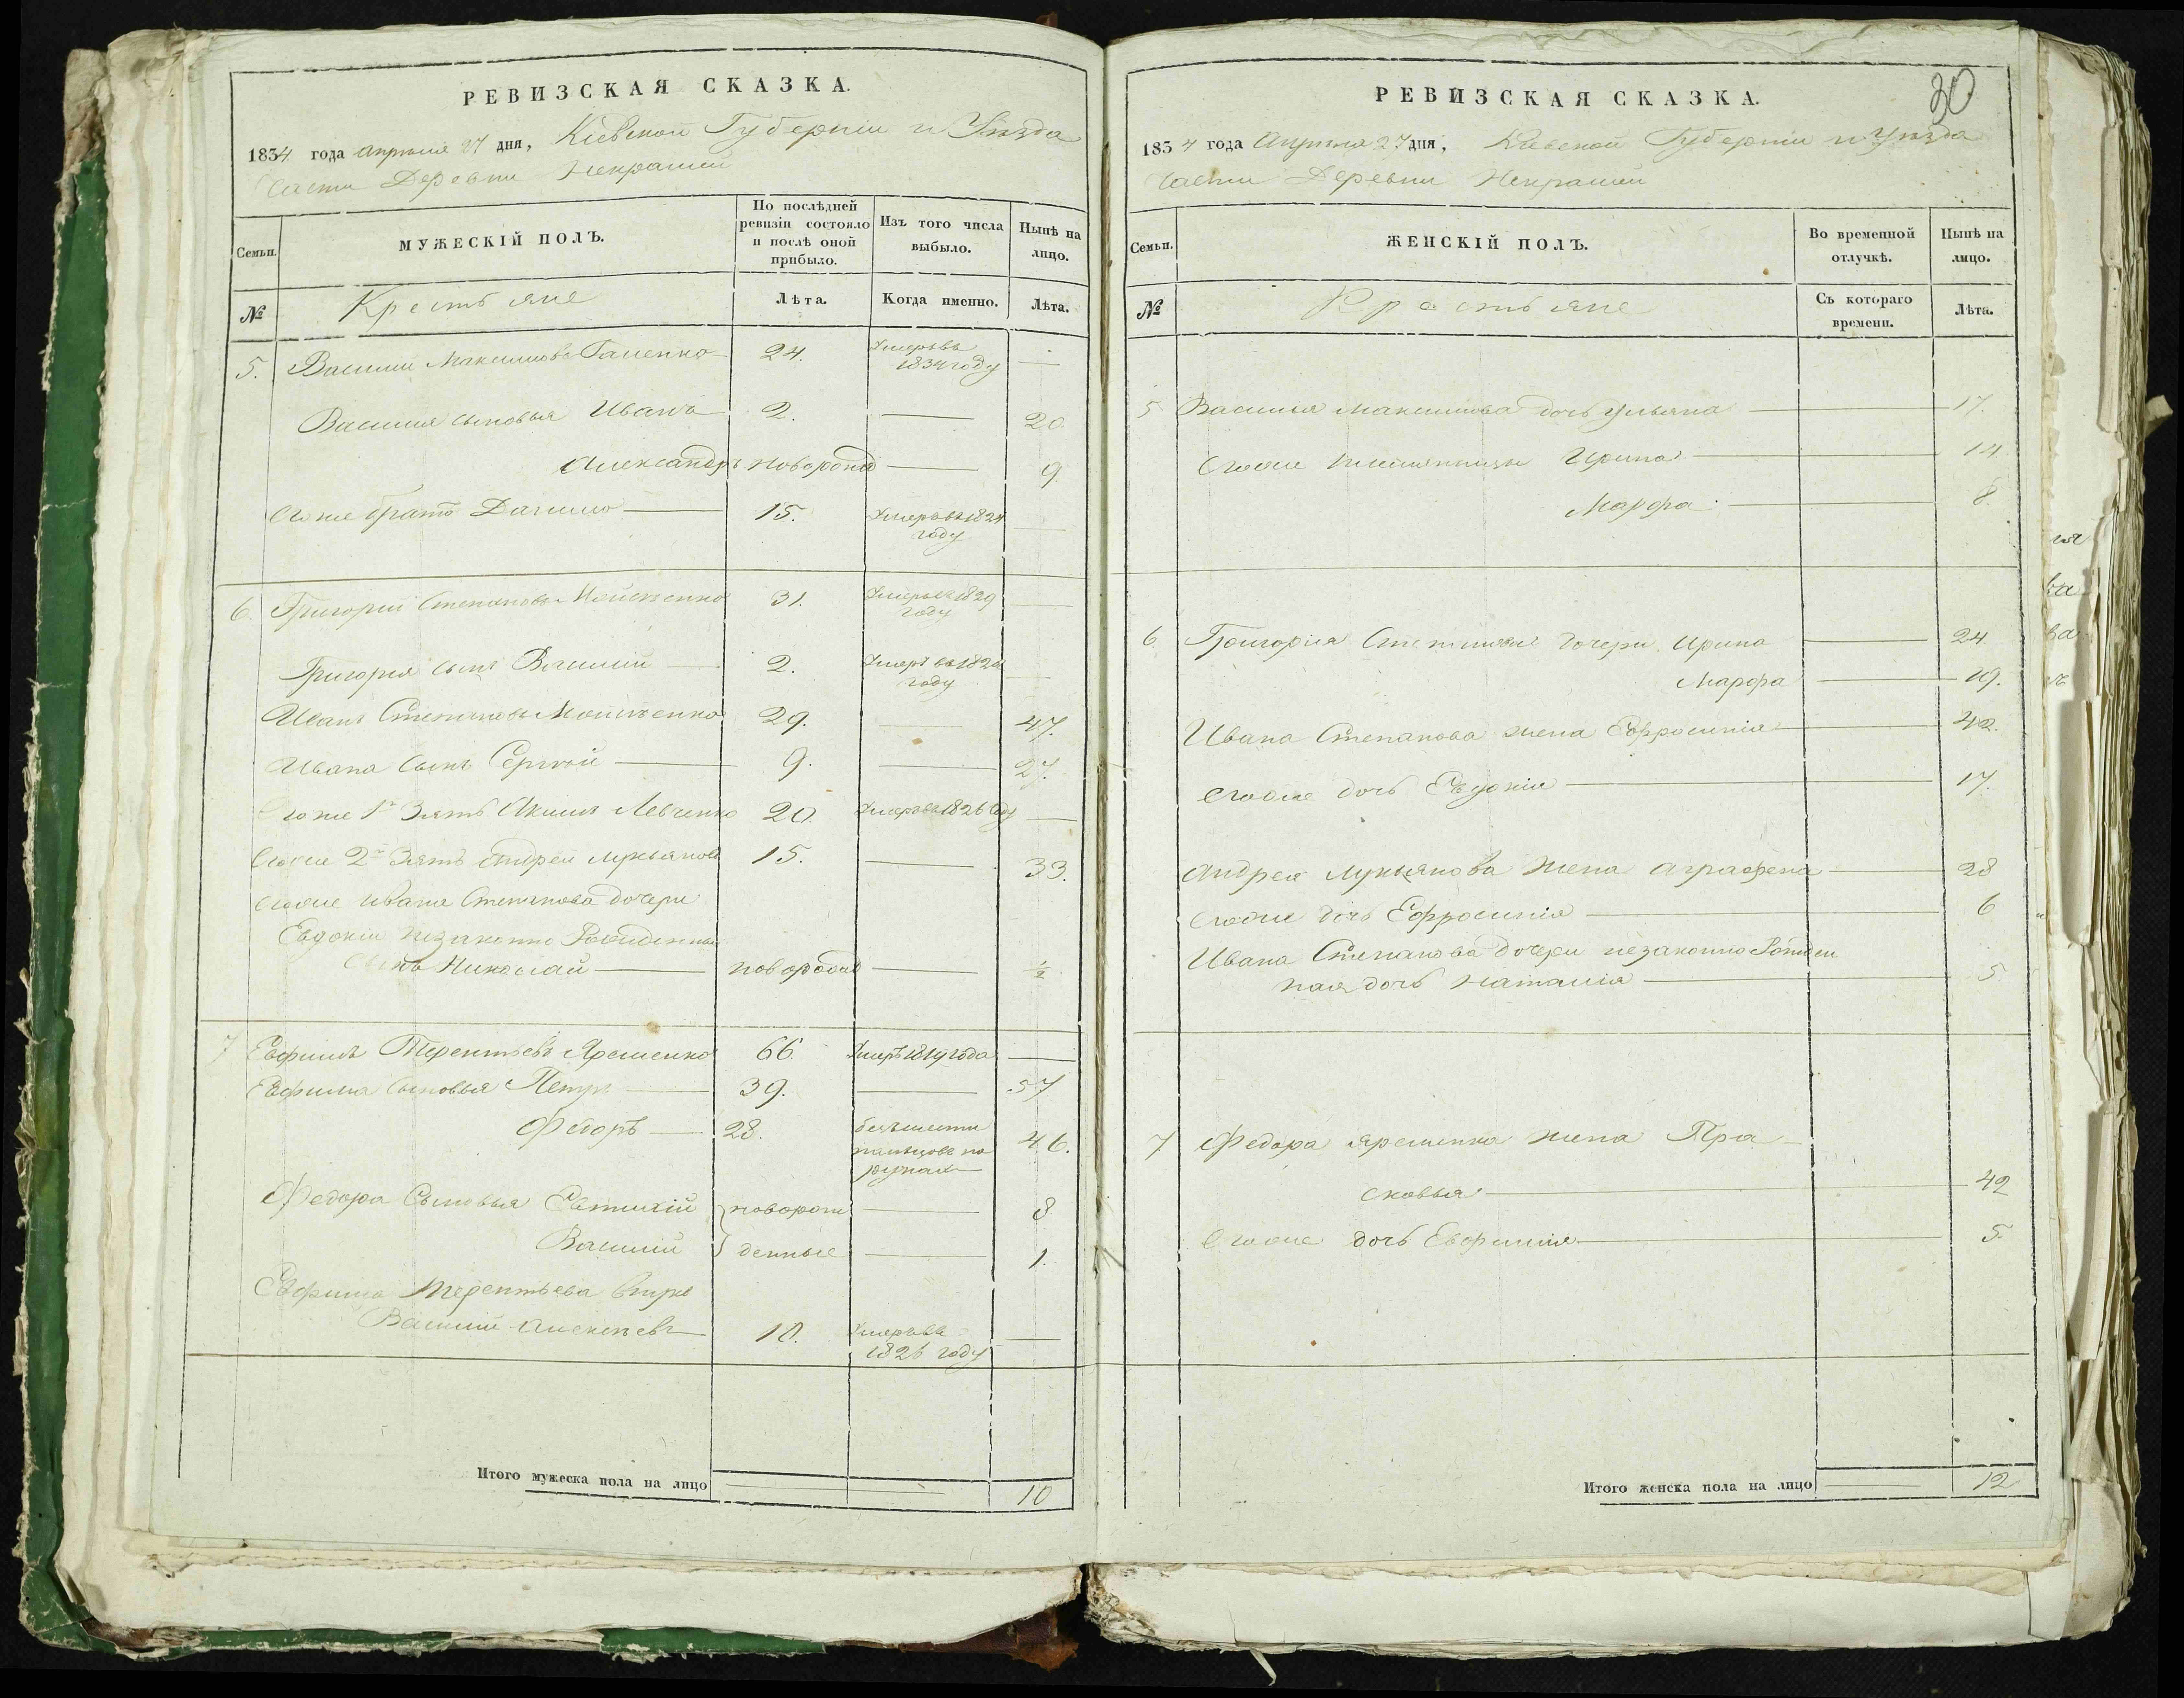 РЕВИЗСКАЯ СКАЗКА.
1834 года апрѣля 27 дня, Кіевской Губерніи и Уѣзда
части Деревни Некрашей
Семьи. МУЖЕСКІЙ ПОЛЪ. По послѣдней ревизіи состояло и послѣ оной прибыло. Изъ того числа выбыло. Нынѣ на лицо.
№ Крестьяне Лѣта. Когда именно. Лѣта.
5. Василий Максимовъ 24. Умеръ въ 1834 году —
Василия сыновья Иванъ 2. — 20.
Александръ новорожд — 9
Егоже братъ Данило — 15. Умеръ въ 1824 году —
6. Григорий Степановъ 31. Умеръ въ 1829 году —
Григория сынъ Василий — 2. Умеръ въ году —
Иванъ Степановъ 29. — 47.
Ивана сынъ Сергѣй — 9. — 27.
Егоже 1й Зять Акимъ Левченко 20. Умеръ въ 1826 году —
Егоже 2й Зять Андрей Лукьяновъ 15. — 33.
Егоже Ивана Степанова дочери
Евдокіи незаконно Рожденный
сынъ Николай — новорожд — ½
7 Евфимъ Терентьевъ Яременко 66. Умеръ 1819 года —
Евфима сыновья Петръ — 39. — 57
Федоръ — 28. безъ шести пальцовъ на рукахъ 46.
Федора Сыновья Евтихій } новорож — 8
Василий } денные — 1.
Евфима Терентьева внукъ
Василий Алексѣевъ 10. Умеръ въ 1826 году —
Итого мужеска пола на лицо — — 10
30
РЕВИЗСКАЯ СКАЗКА.
1834 года Апрѣля 27 дня, Кіевской Губерніи и Уѣзда
части Деревни Некрашей
Семьи. ЖЕНСКІЙ ПОЛЪ. Во временной отлучкѣ. Нынѣ на лицо.
№ Крестьяне Съ котораго времени. Лѣта.
5 Василия Максимова дочь Ульяна — 17.
Егоже племянницы Ирина — 14
Марфа — 8.
6 Григорія Степанова дочери Ирина — 24.
Марфа — 19.
Ивана Степанова жена Ефросинія — 42.
Егоже дочь Евдокія — 17.
Андрея Лукьянова жена Аграфена — 28
Егоже дочь Ефросинія — 6
Ивана Степанова дочери незаконно Рожден
ная дочь Наталія — 5
7 Федора Яременка жена Пра-
сковья — 42
Егоже дочь Евфимія — 5.
Итого женска пола на лицо — 12